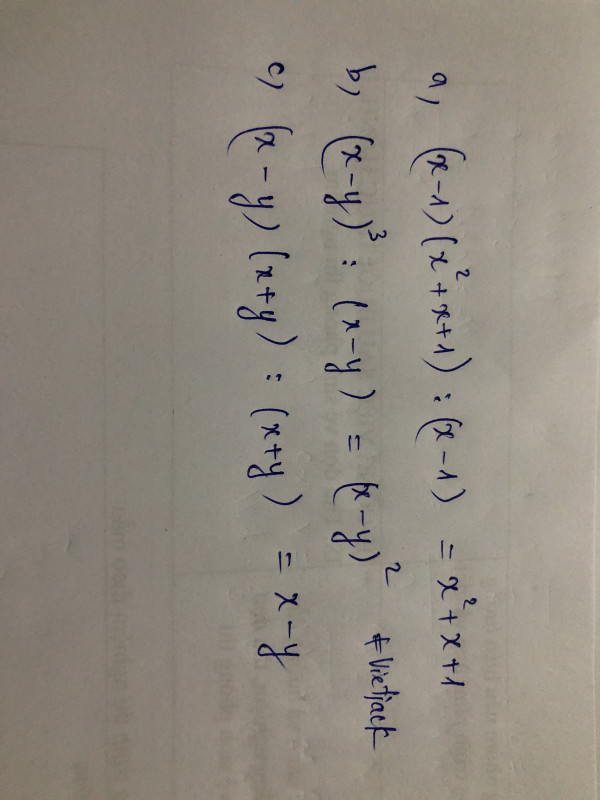 a, (x-1)(x²+x+1) : (x-1) = x²+x+1
b, (x-y)³ : (x-y) = (x-y)²
#Vietjack
c, (x-y)(x+y) : (x+y) = x-y